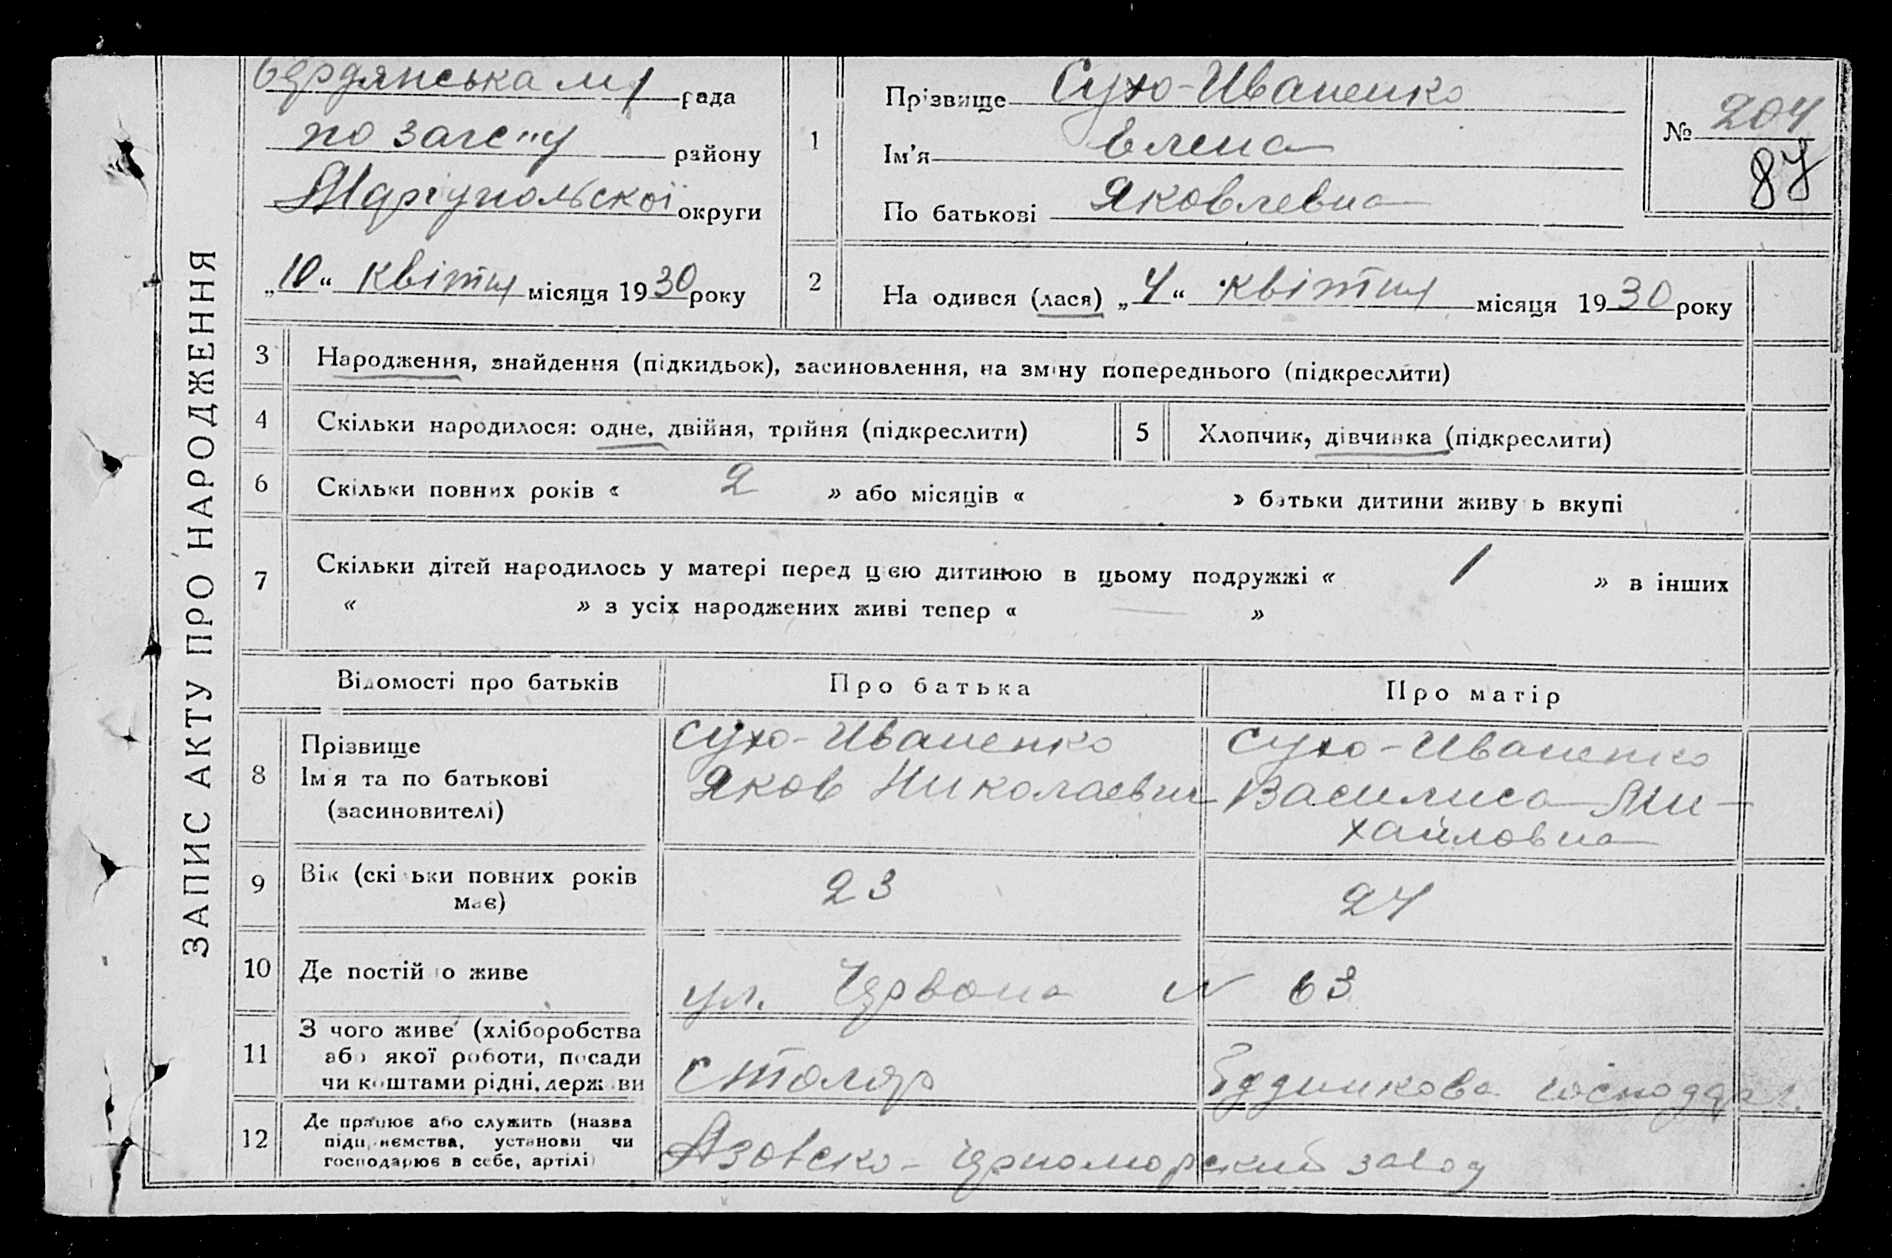 ЗАПИС АКТУ ПРО НАРОДЖЕННЯ
Бердянська м/ рада
по загсу району
Маріупольскої округи
„10“ квітня місяця 1930 року
1
Прізвище Сухо-Иваненко
Ім'я Елена
По батькові Яковлевна
№ 204
87
2
На одився (лася) „4“ квітня місяця 1930 року
3 Народження, знайдення (підкидьок), засиновлення, на зміну попереднього (підкреслити)
4 Скільки народилося: одне, двійня, трійня (підкреслити)
5 Хлопчик, дівчинка (підкреслити)
6 Скільки повних років « 2 » або місяців « » батьки дитини живу ь вкупі
7 Скільки дітей народилось у матері перед цією дитиною в цьому подружжі « 1 » в інших
« » з усіх народжених живі тепер « — »
Відомості про батьків Про батька Про матір
8 Прізвище
Ім'я та по батькові
(засиновителі)
Сухо-Иваненко
Яков Николаевич
Сухо-Иваненко
Василиса Ми-
хайловна
9 Вік (скільки повних років
має)
23
24
10 Де постійно живе
ул. Червона № 63
11 З чого живе (хліборобства
або якої роботи, посади
чи коштами рідні, держ ви
столяр
Будинкова господар.
12 Де працює або служить (назва
підприємства, установи чи
господарює в себе, артілі)
Азовско-Черноморский завод